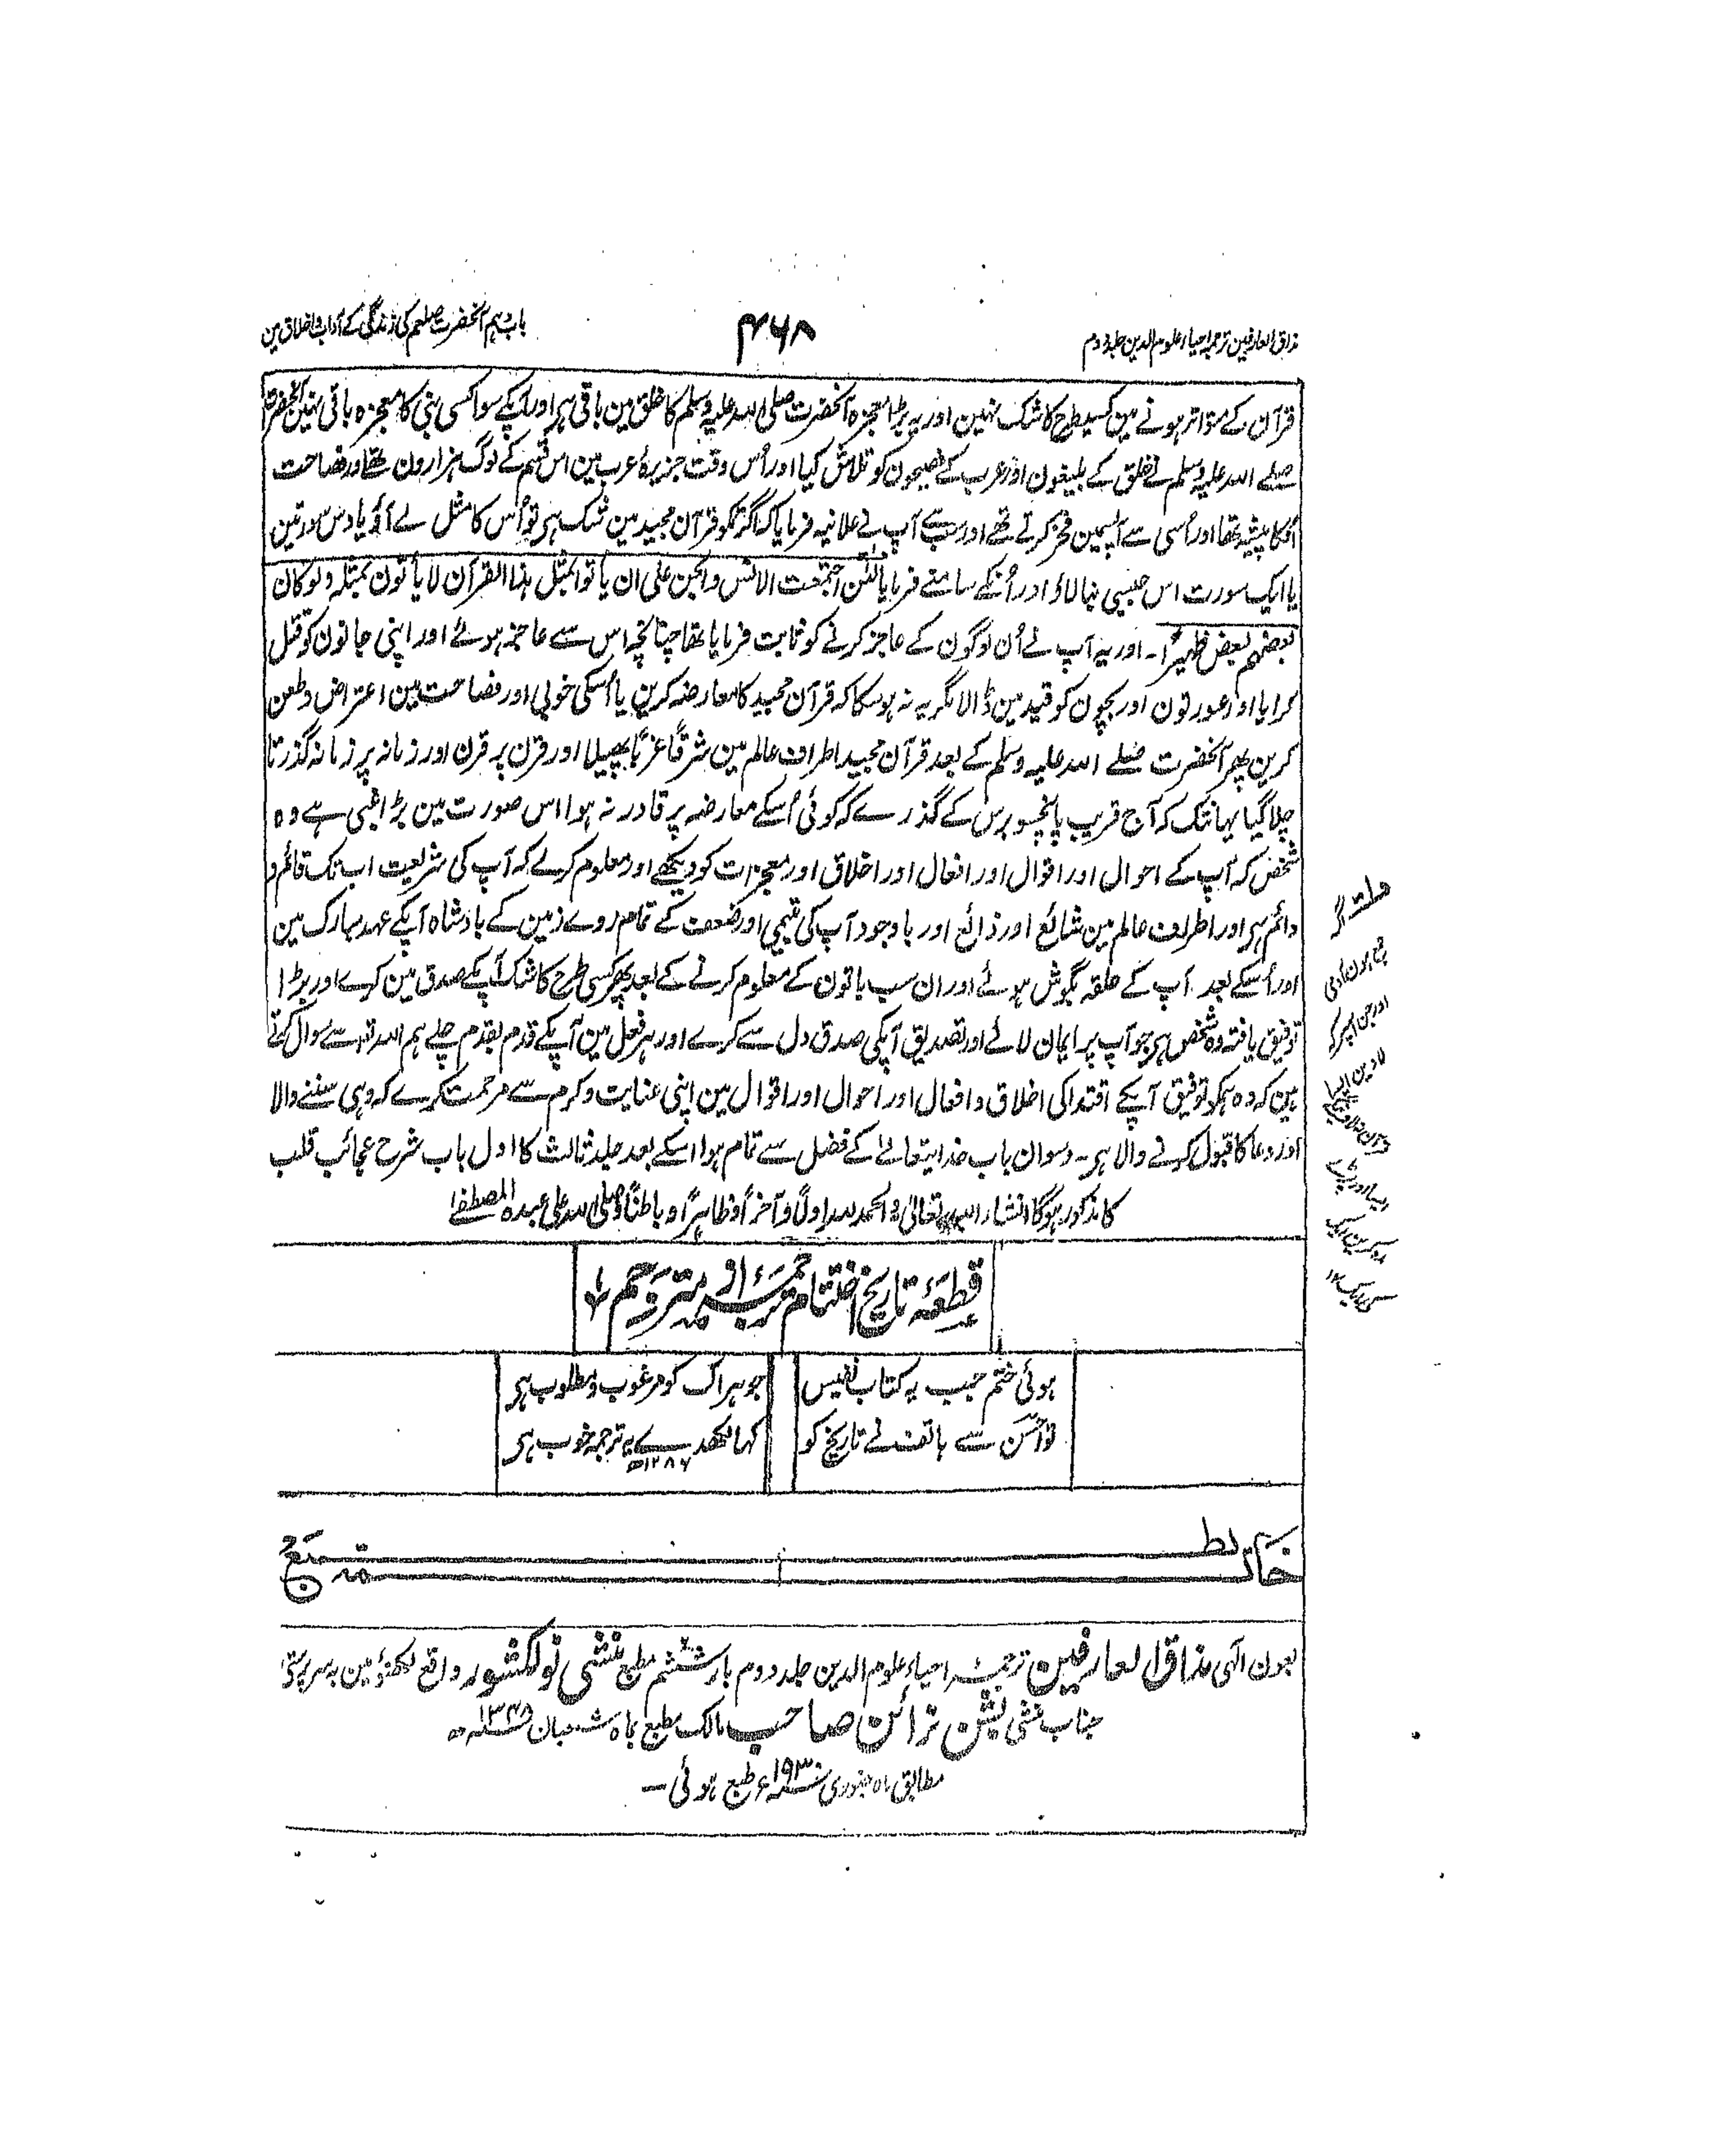 مذاق العارفین ترجمہ احیاء علوم الدین جلد دوم
۴۶۸
باب دہم آنحضرت صلعم کی زندگی کے آداب و اخلاق مین
قرآن کے متواتر ہونے مین کسیطرح کا شک نہین اور یہ بڑا معجزہ آنحضرت صلی اللہ علیہ وسلم کا خلق مین باقی ہی اور آپکے سوا کسی نبی کا معجزہ باقی نہین آنحضرت
صلے اللہ علیہ وسلم نے خلق کے بلیغون اور عرب کے فصیحون کو تلاش کیا اور اُس وقت جزیرۂ عرب مین اس قسم کے لوگ ہزارون تھے اور فصاحت
اُنکا پیشہ تھا اور اُسی سے آپسمین فخر کرتے تھے اور آپ نے علانیہ فرمایا کہ اگر تمکو قرآن مجید مین شک ہی تو اُس کا مثل لے آؤ یا دس سورتین
یا ایک سورت اس جیسی بنا لاؤ اور اُنکے سامنے فرمایا لئن اجتمعت الانس والجن علی ان یأتوا بمثل ہذا القرآن لا یأتون بمثلہ ولو کان
بعضہم لبعض ظہیراً ۔ اور یہ آپ نے اُن لوگون کے عاجز کرنے کو ثابت فرمایا تھا چنانچہ اس سے عاجز ہوئے اور اپنی جانون کو قتل
کرایا اور عورتون اور بچون کو قید مین ڈالا مگر یہ نہ ہوسکا کہ قرآن مجید کا معارضہ کرین یا اُسکی خوبی اور فصاحت مین اعتراض و طعن
کرین پھر آنحضرت صلے اللہ علیہ وسلم کے بعد قرآن مجید اطراف عالم مین شرقاً غرباً پھیلا اور قرن پر قرن اور زمانہ پر زمانہ گذرتا
چلا گیا یہانتک کہ آج قریب پانچسو برس کے گذرے کہ کوئی اُسکے معارضہ پر قادر نہ ہوا اس صورت مین بڑا غبی ہے وہ
شخص کہ آپ کے احوال اور اقوال اور افعال اور اخلاق اور معجزات کو دیکھے اور معلوم کرلے کہ آپ کی شریعت اب تک قائم و
دائم ہی اور اطراف عالم مین شائع اور ذائع اور باوجود آپ کی یتیمی اور ضعف کے تمام روے زمین کے بادشاہ آپکے عہد مبارک مین
اور اُسکے بعد آپ کے حلقہ بگوش ہوئے اور ان سب باتون کے معلوم کرنے کے بعد پھر کسی طرح کا شک آپکے صدق مین کرے اور بڑا
توفیق یافتہ وہ شخص ہی جو آپ پر ایمان لائے اور تصدیق آپکی صدق دل سے کرے اور ہر فعل مین آپکے قدم بقدم چلے ہم اللہ تعالیٰ سے سوال کرتے
ہین کہ وہ ہمکو توفیق آپکے اقتدا کی اخلاق و افعال اور احوال اور اقوال مین اپنی عنایت و کرم سے مرحمت کرے کہ وہی سننے والا
اور دعا کا قبول کرنے والا ہی ۔ دسوان باب خدا یتعالےٰ کے فضل سے تمام ہوا اسکے بعد جلد ثالث کا اول باب شرح عجائب قلب
کا مذکور ہوگا انشاء اللہ تعالیٰ والحمد للہ اولاً و آخراً و ظاہراً و باطناً و صلی اللہ علی عبدہ المصطفےٰ
جمع ہون آدمی
اور جن اسپر کہ
لاوین ایسا
قطعۂ تاریخ اختتام ترجمہ از مترجم
ہوئی ختم جب یہ کتاب نفیس
جو ہر اک کو مرغوب و مطلوب ہی
تو احسن سے ہاتف نے تاریخ کو
کہا لکھدے یہ ترجمہ خوب ہی
۱۲۸۶ھ
خاتمۃ الطبع
بعون آلہی مذاق العارفین ترجمۂ احیاء علوم الدین جلد دوم بار ششم مطبع منشی نولکشور واقع لکھنؤ مین بہ سرپرستی
جناب منشی بشن نرائن صاحب مالک مطبع بماہ شعبان ۱۳۴۸ھ
مطابق ماہ جنوری ۱۹۳۰ء طبع ہوئی ۔